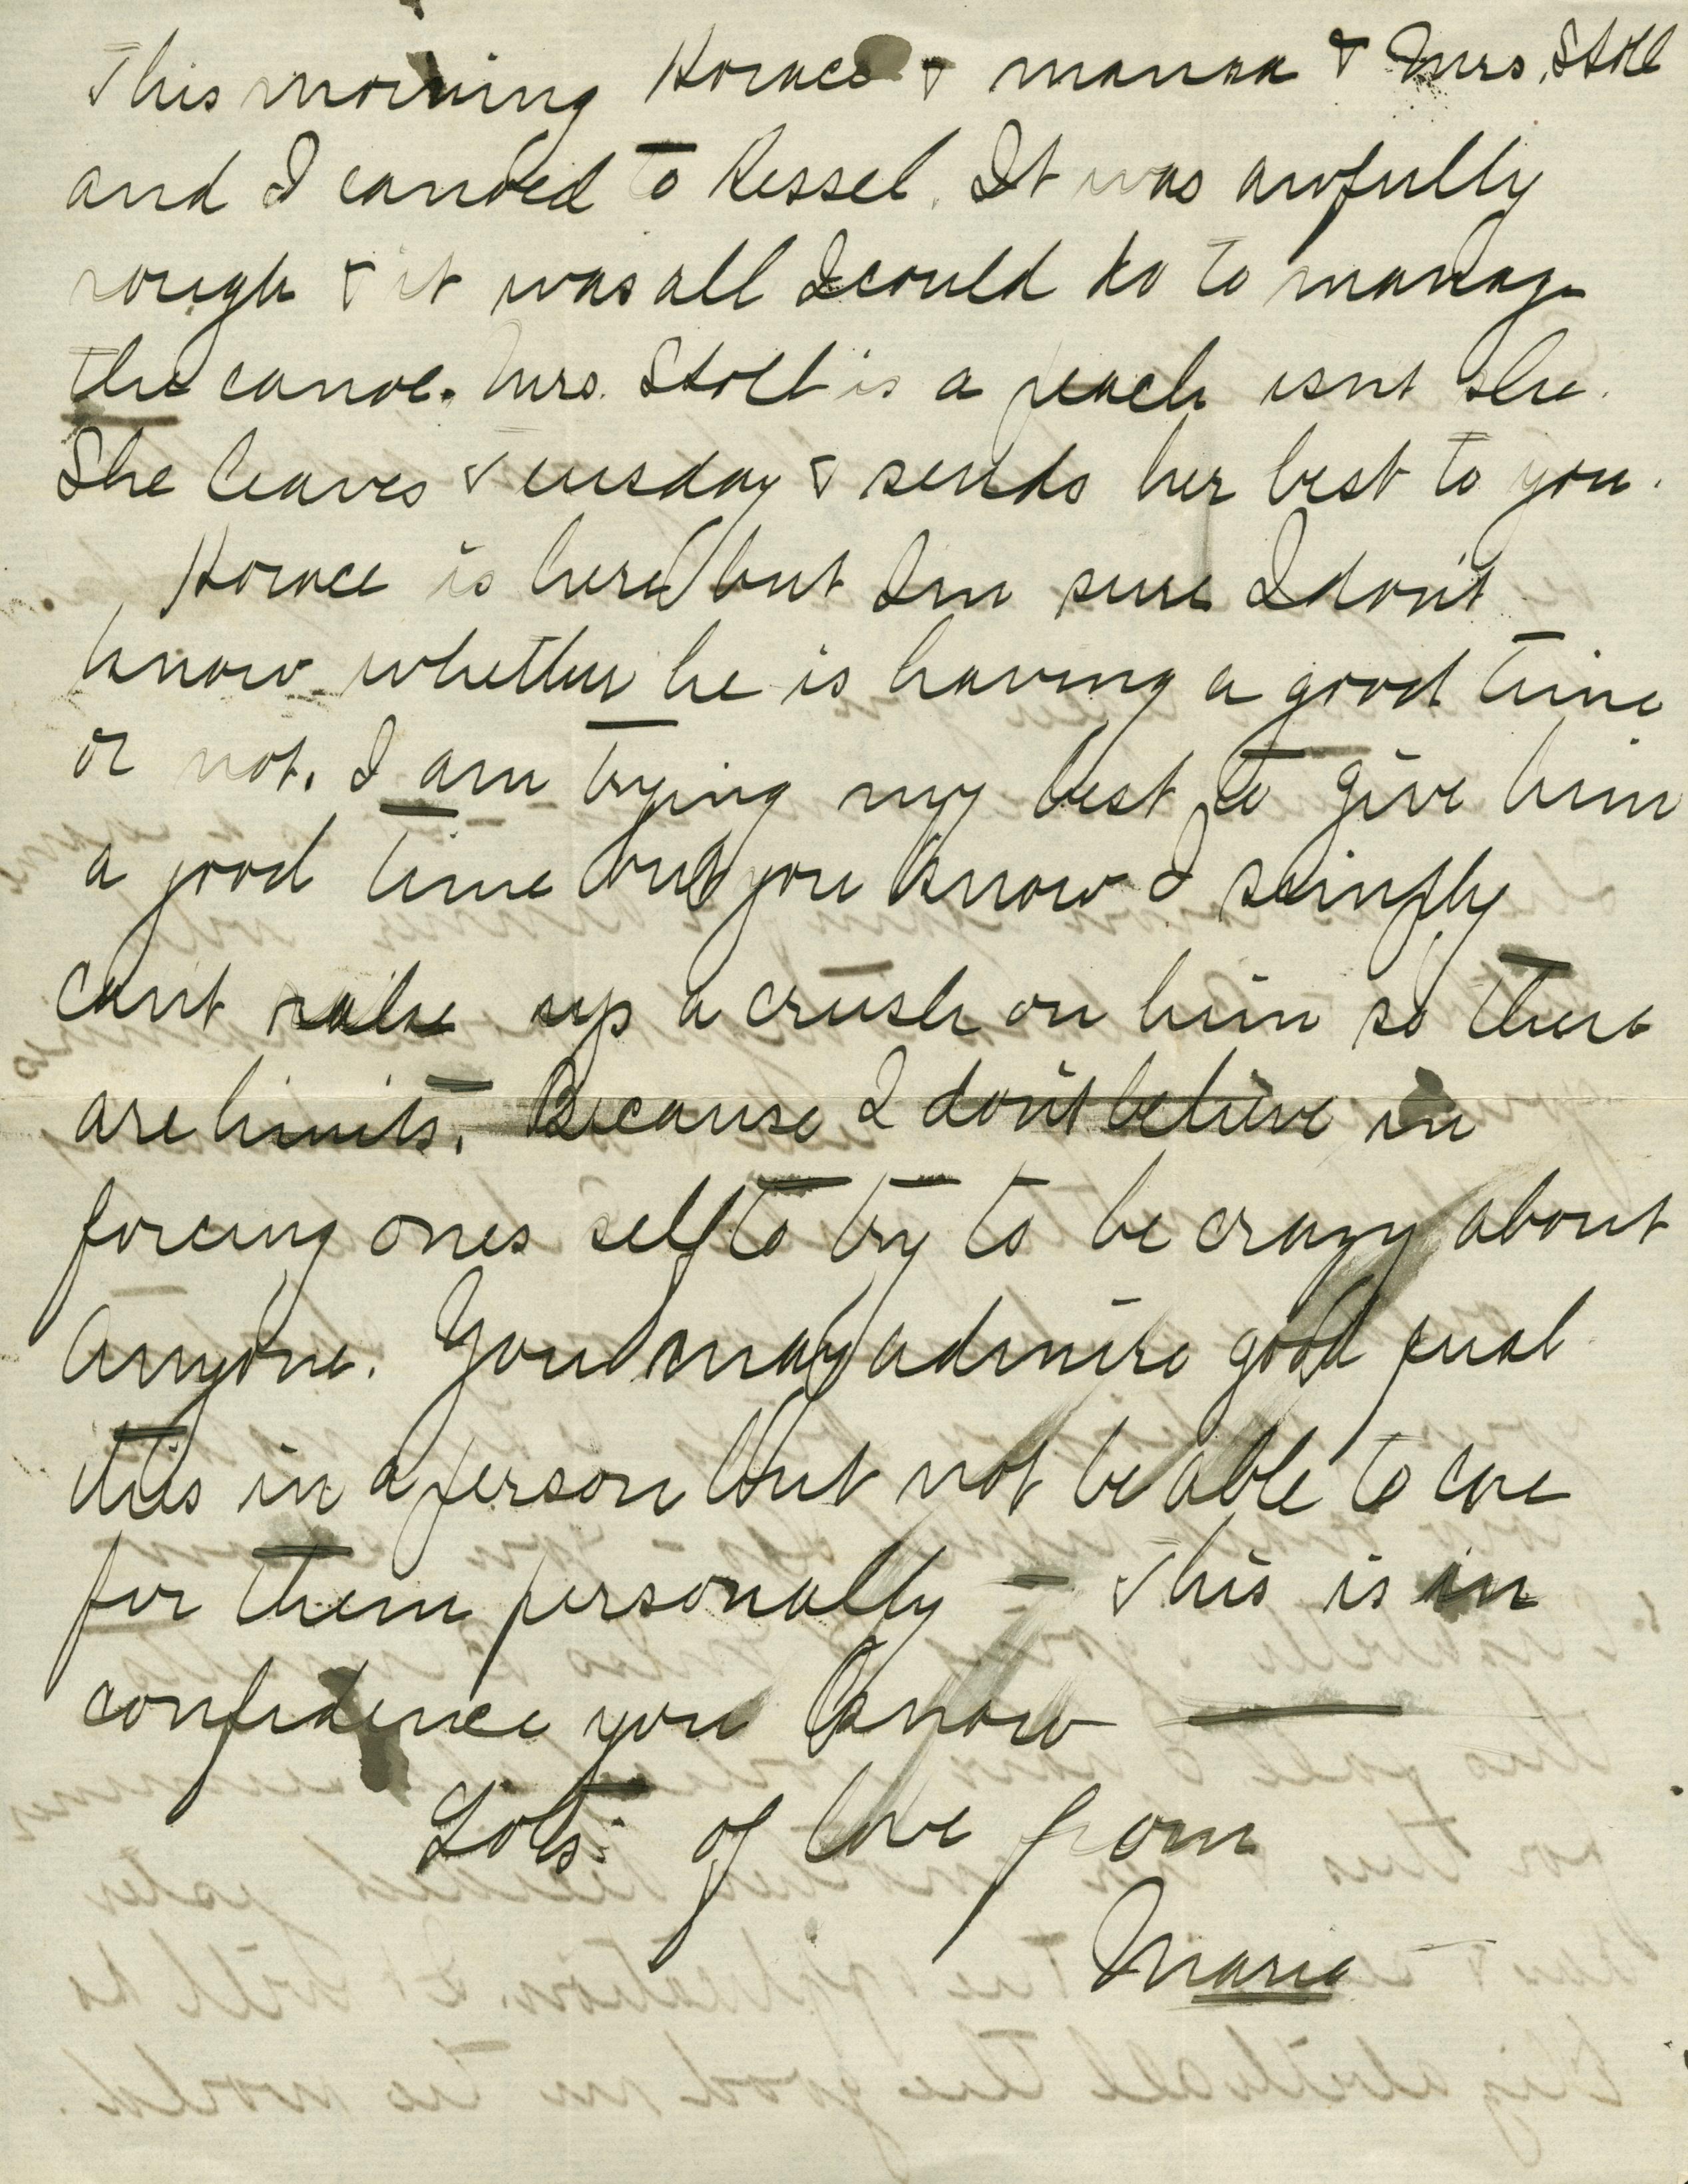 This morning Horace & mama & Mrs. Stoll
and I canoed to Kessel. It was awfully
rough & it was all I could do to manage
the canoe. Mrs. Stoll is a peach isnt she.
She leaves Tuesday & sends her best to you.
Horace is here but Im sure I don't
know whether he is having a good time
or not. I am trying my best to give him
a good time but you know I simply
cant rake up a crush on him so there
are limits. Because I don't believe in
forcing ones self to try to be crazy about
anyone. You may admire good qual
ities in a person but not be able to care
for them personally – This is in
confidence you know —
Lots of love from
Marie